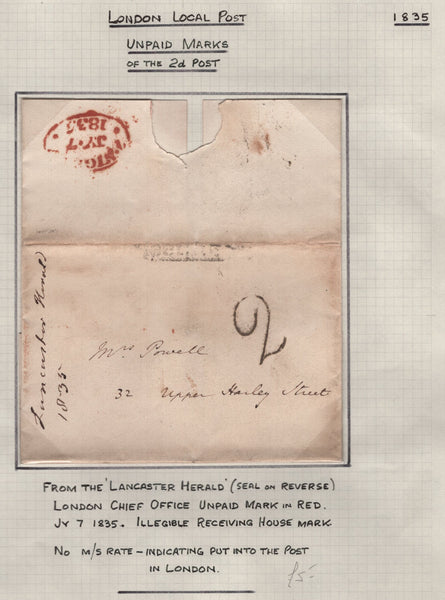 LONDON LOCAL POST
1835
UNPAID MARKS
OF THE 2d POST
7·NIGHT
JY·7
1835
Lancaster Herald
1835
2
Mrs Powell
32 Upper Harley Street
FROM THE 'LANCASTER HERALD' (SEAL ON REVERSE)
LONDON CHIEF OFFICE UNPAID MARK IN RED.
JY 7 1835. ILLEGIBLE RECEIVING HOUSE MARK
NO M/S RATE – INDICATING PUT INTO THE POST
IN LONDON.
£5-